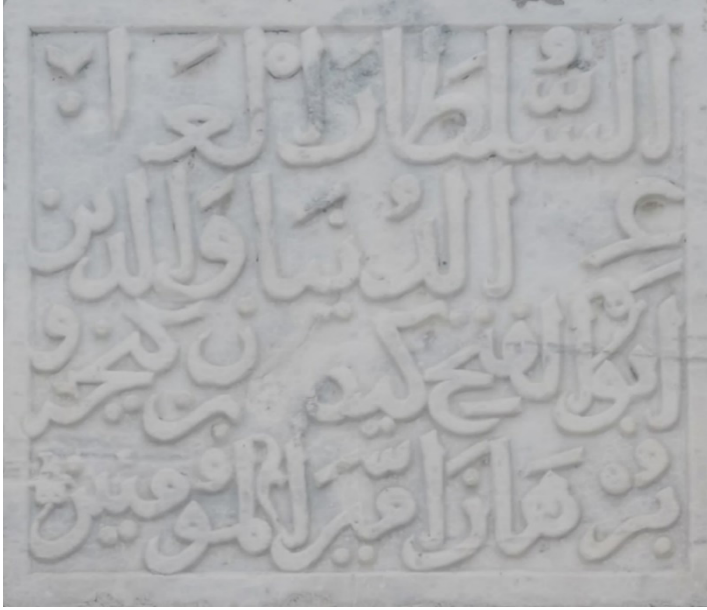 السُّلطان الغا لب
عز الدُّنيا وَالدين
ابوُ الفتح كيكاوس بن كيخسرو
بُرْهان اميرَ المؤمنين